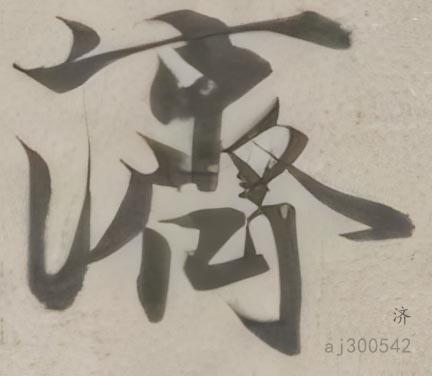 濟
济
aj300542